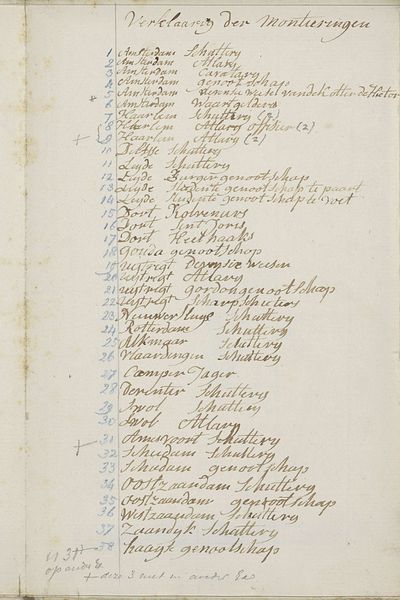 Verklaarig der Monteeringen
1 Amsterdam Schuttery
2 Amsterdam Allarm
3 Amsterdam Cavalary
4 Amsterdam genootschap
5 Amsterdam
6 Amsterdam Waartgelders
7 Haarlem Schuttery (2)
8 Haarlem Allarm offisier (2)
9 Haarlem Allarm (2)
10 Delfse Schuttery
11 Lyde Schuttery
12 Lyde Burger genootschap
13 Leyde Studente genootschap te paart
14 Leyde Studente genootschap te voet
15 Dort Kolveniers
16 Dort Sint Joris
17 Dort Heelhaaks
18 gouda genootschap
19 uijtregt
20 uijtregt Allarm
21 uijtregt gordongenootschap
22 uijtregt scharpschieters
23 Nieuwersluys Schuttery
24 Rotterdam Schuttery
25 Alkmaar Schuttery
26 Vlaardingen Schuttery
27 Camper Jager
28 Deventer Schuttery
29 Swol Schuttery
30 Swol Allarm
31 Amersvoort Schuttery
32 Schiedam Schuttery
33 Schiedam genootschap
34 Oostzaandam Schuttery
35 Oostzaandam genootschap
36 Westzaandam Schuttery
37 Zaandyk Schuttery
38 haags genootschap
+ deze 3 niet in ander Ex